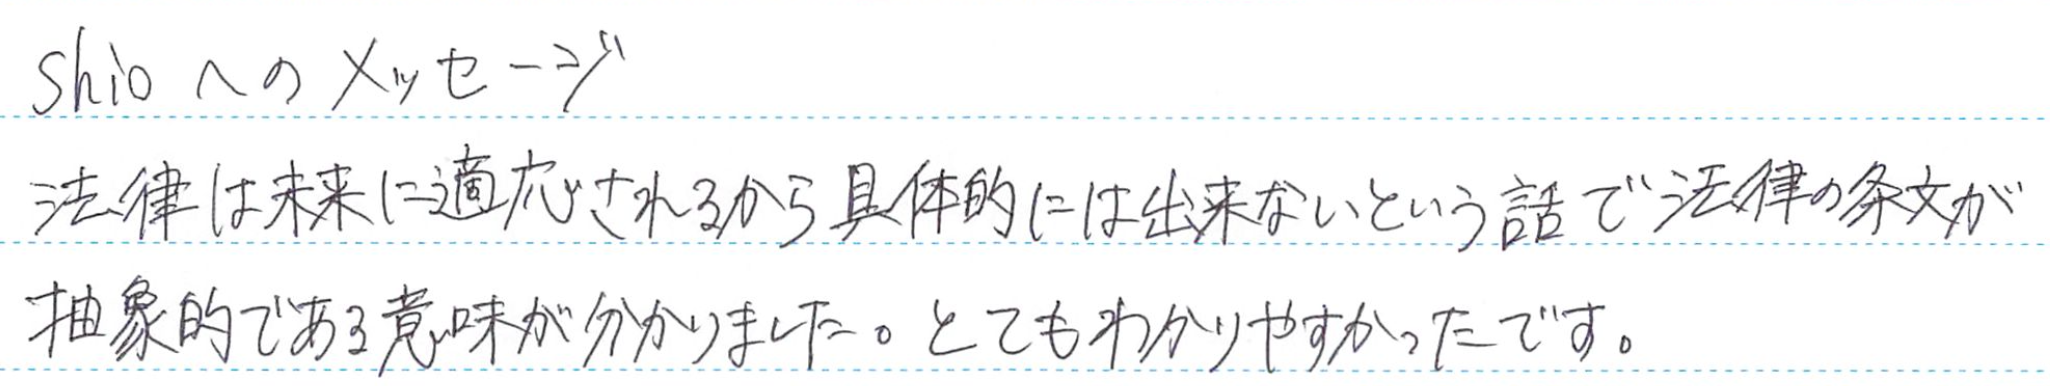 shioへのメッセージ
法律は未来に適応されるから具体的には出来ないという話で法律の条文が
抽象的である意味が分かりました。とてもわかりやすかったです。